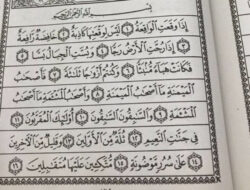 بِسْمِ اللَّهِ الرَّحْمَٰنِ الرَّحِيمِ
إِذَا وَقَعَتِ الْوَاقِعَةُ ١ لَيْسَ لِوَقْعَتِهَا كَاذِبَةٌ ٢ خَافِضَةٌ رَّافِعَةٌ
٣ إِذَا رُجَّتِ الْأَرْضُ رَجًّا ٤ وَبُسَّتِ الْجِبَالُ بَسًّا ٥
فَكَانَتْ هَبَاءً مُّنبَثًّا ٦ وَكُنتُمْ أَزْوَاجًا ثَلَٰثَةً ٧ فَأَصْحَٰبُ
الْمَيْمَنَةِ مَا أَصْحَٰبُ الْمَيْمَنَةِ ٨ وَأَصْحَٰبُ الْمَشْـَٔمَةِ مَا أَصْحَٰبُ
الْمَشْـَٔمَةِ ٩ وَالسَّٰبِقُونَ السَّٰبِقُونَ ١٠ أُولَٰئِكَ الْمُقَرَّبُونَ ١١
فِي جَنَّٰتِ النَّعِيمِ ١٢ ثُلَّةٌ مِّنَ الْأَوَّلِينَ ١٣ وَقَلِيلٌ مِّنَ الْآخِرِينَ
١٤ عَلَىٰ سُرُرٍ مَّوْضُونَةٍ ١٥ مُّتَّكِـِٔينَ عَلَيْهَا مُتَقَٰبِلِينَ ١٦